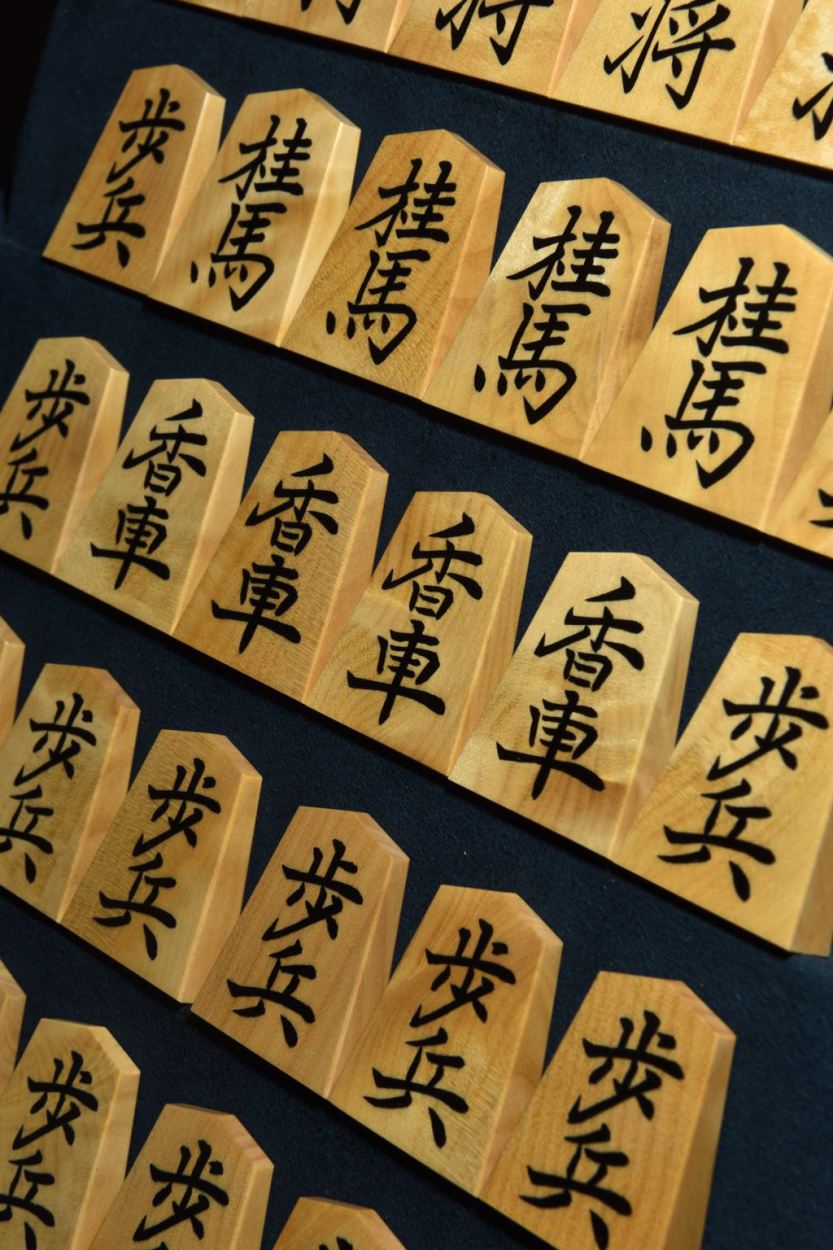 将
将
歩兵
桂馬
桂馬
桂馬
桂馬
歩兵
香車
香車
香車
香車
歩兵
歩兵
歩兵
歩兵
歩兵
歩兵
歩兵
歩兵